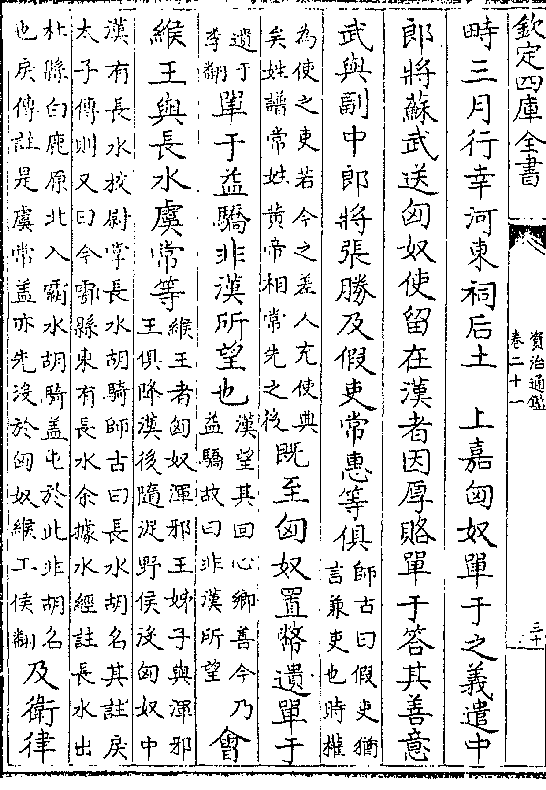 欽定四庫全書
資治通鑑
卷二十一
三十
畤三月行幸河東祠后土　上嘉匈奴單于之義遣中
郎將蘇武送匈奴使留在漢者因厚賂單于答其善意
武與副中郎將張勝及假吏常惠等俱
師古曰假吏猶
言兼吏也時權
為使之吏若今之差人充使典
矣姓譜常姓黃帝相常先之後
既至匈奴置幣遺單于
遺于
李翻
單于益驕非漢所望也
漢望其回心鄉善今乃
益驕故曰非漢所望
會
緱王與長水虞常等
緱王者匈奴渾邪王姊子與渾邪
王俱降漢後隨浞野侯没匈奴中
漢有長水校尉掌長水胡騎師古曰長水胡名其註戾
太子傳則又曰今鄠縣東有長水余據水經註長水出
杜縣白鹿原北入霸水胡騎盖屯於此非胡名
也戾傳註是虞常盖亦先没於匈奴緱工侯翻
及衛律